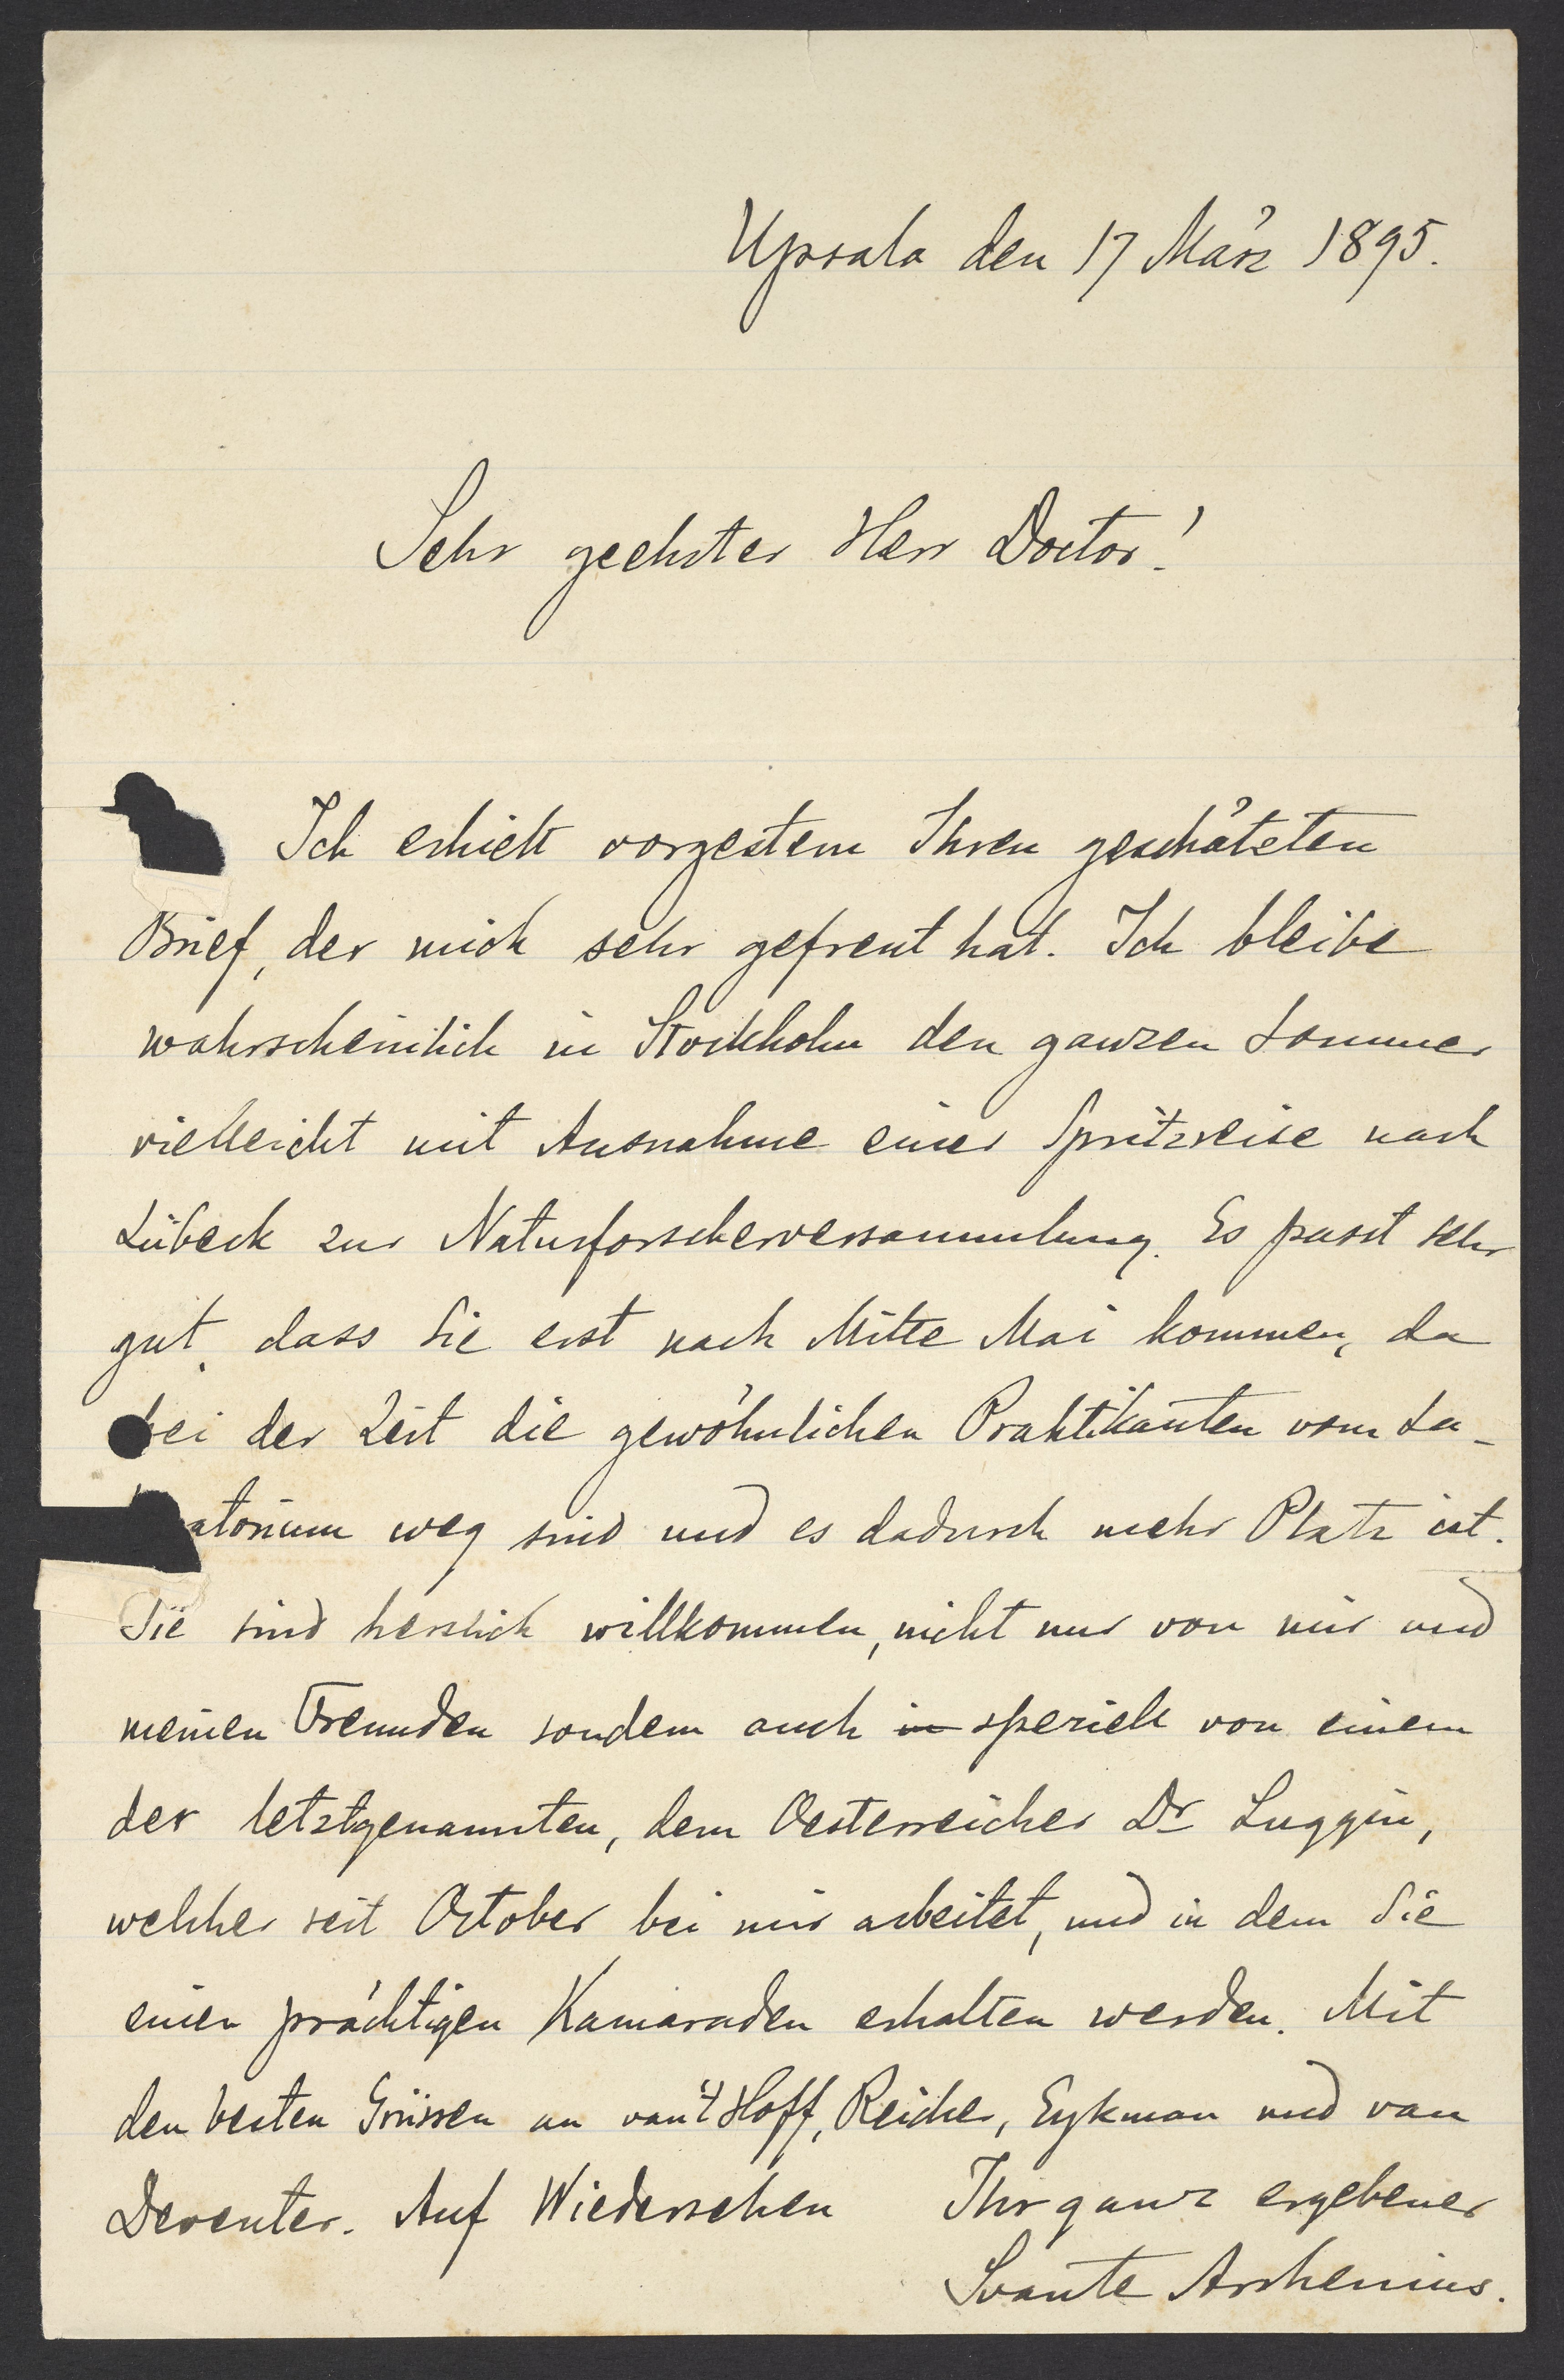 Upsala den 17 März 1895.
Sehr geehrter Herr Doctor!
Ich erhielt vorgestern Ihren geschätzten
Brief, der mich sehr gefreut hat. Ich bleibe
wahrscheinlich in Stockholm den ganzen Sommer
vielleicht mit Ausnahme einer Spritzreise nach
Lübeck zur Naturforscherversammlung. Es passt sehr
gut, dass Sie erst nach Mitte Mai kommen, da
bei der Zeit die gewöhnlichen Praktikanten vom La-
atorium weg sind und es dadurch mehr Platz ist.
Sie sind herzlich willkommen, nicht nur von mir und
meinen Freunden sondern auch in speziell von einem
der letztgenannten, dem Oesterreicher Dr Luggin,
welcher seit October bei mir arbeitet, und in dem Sie
einen prächtigen Kamaraden erhalten werden. Mit
den besten Grüssen an van't Hoff, Reicher, Eykman und van
Deventer. Auf Wiedersehen Ihr ganz ergebener
Svante Arrhenius.